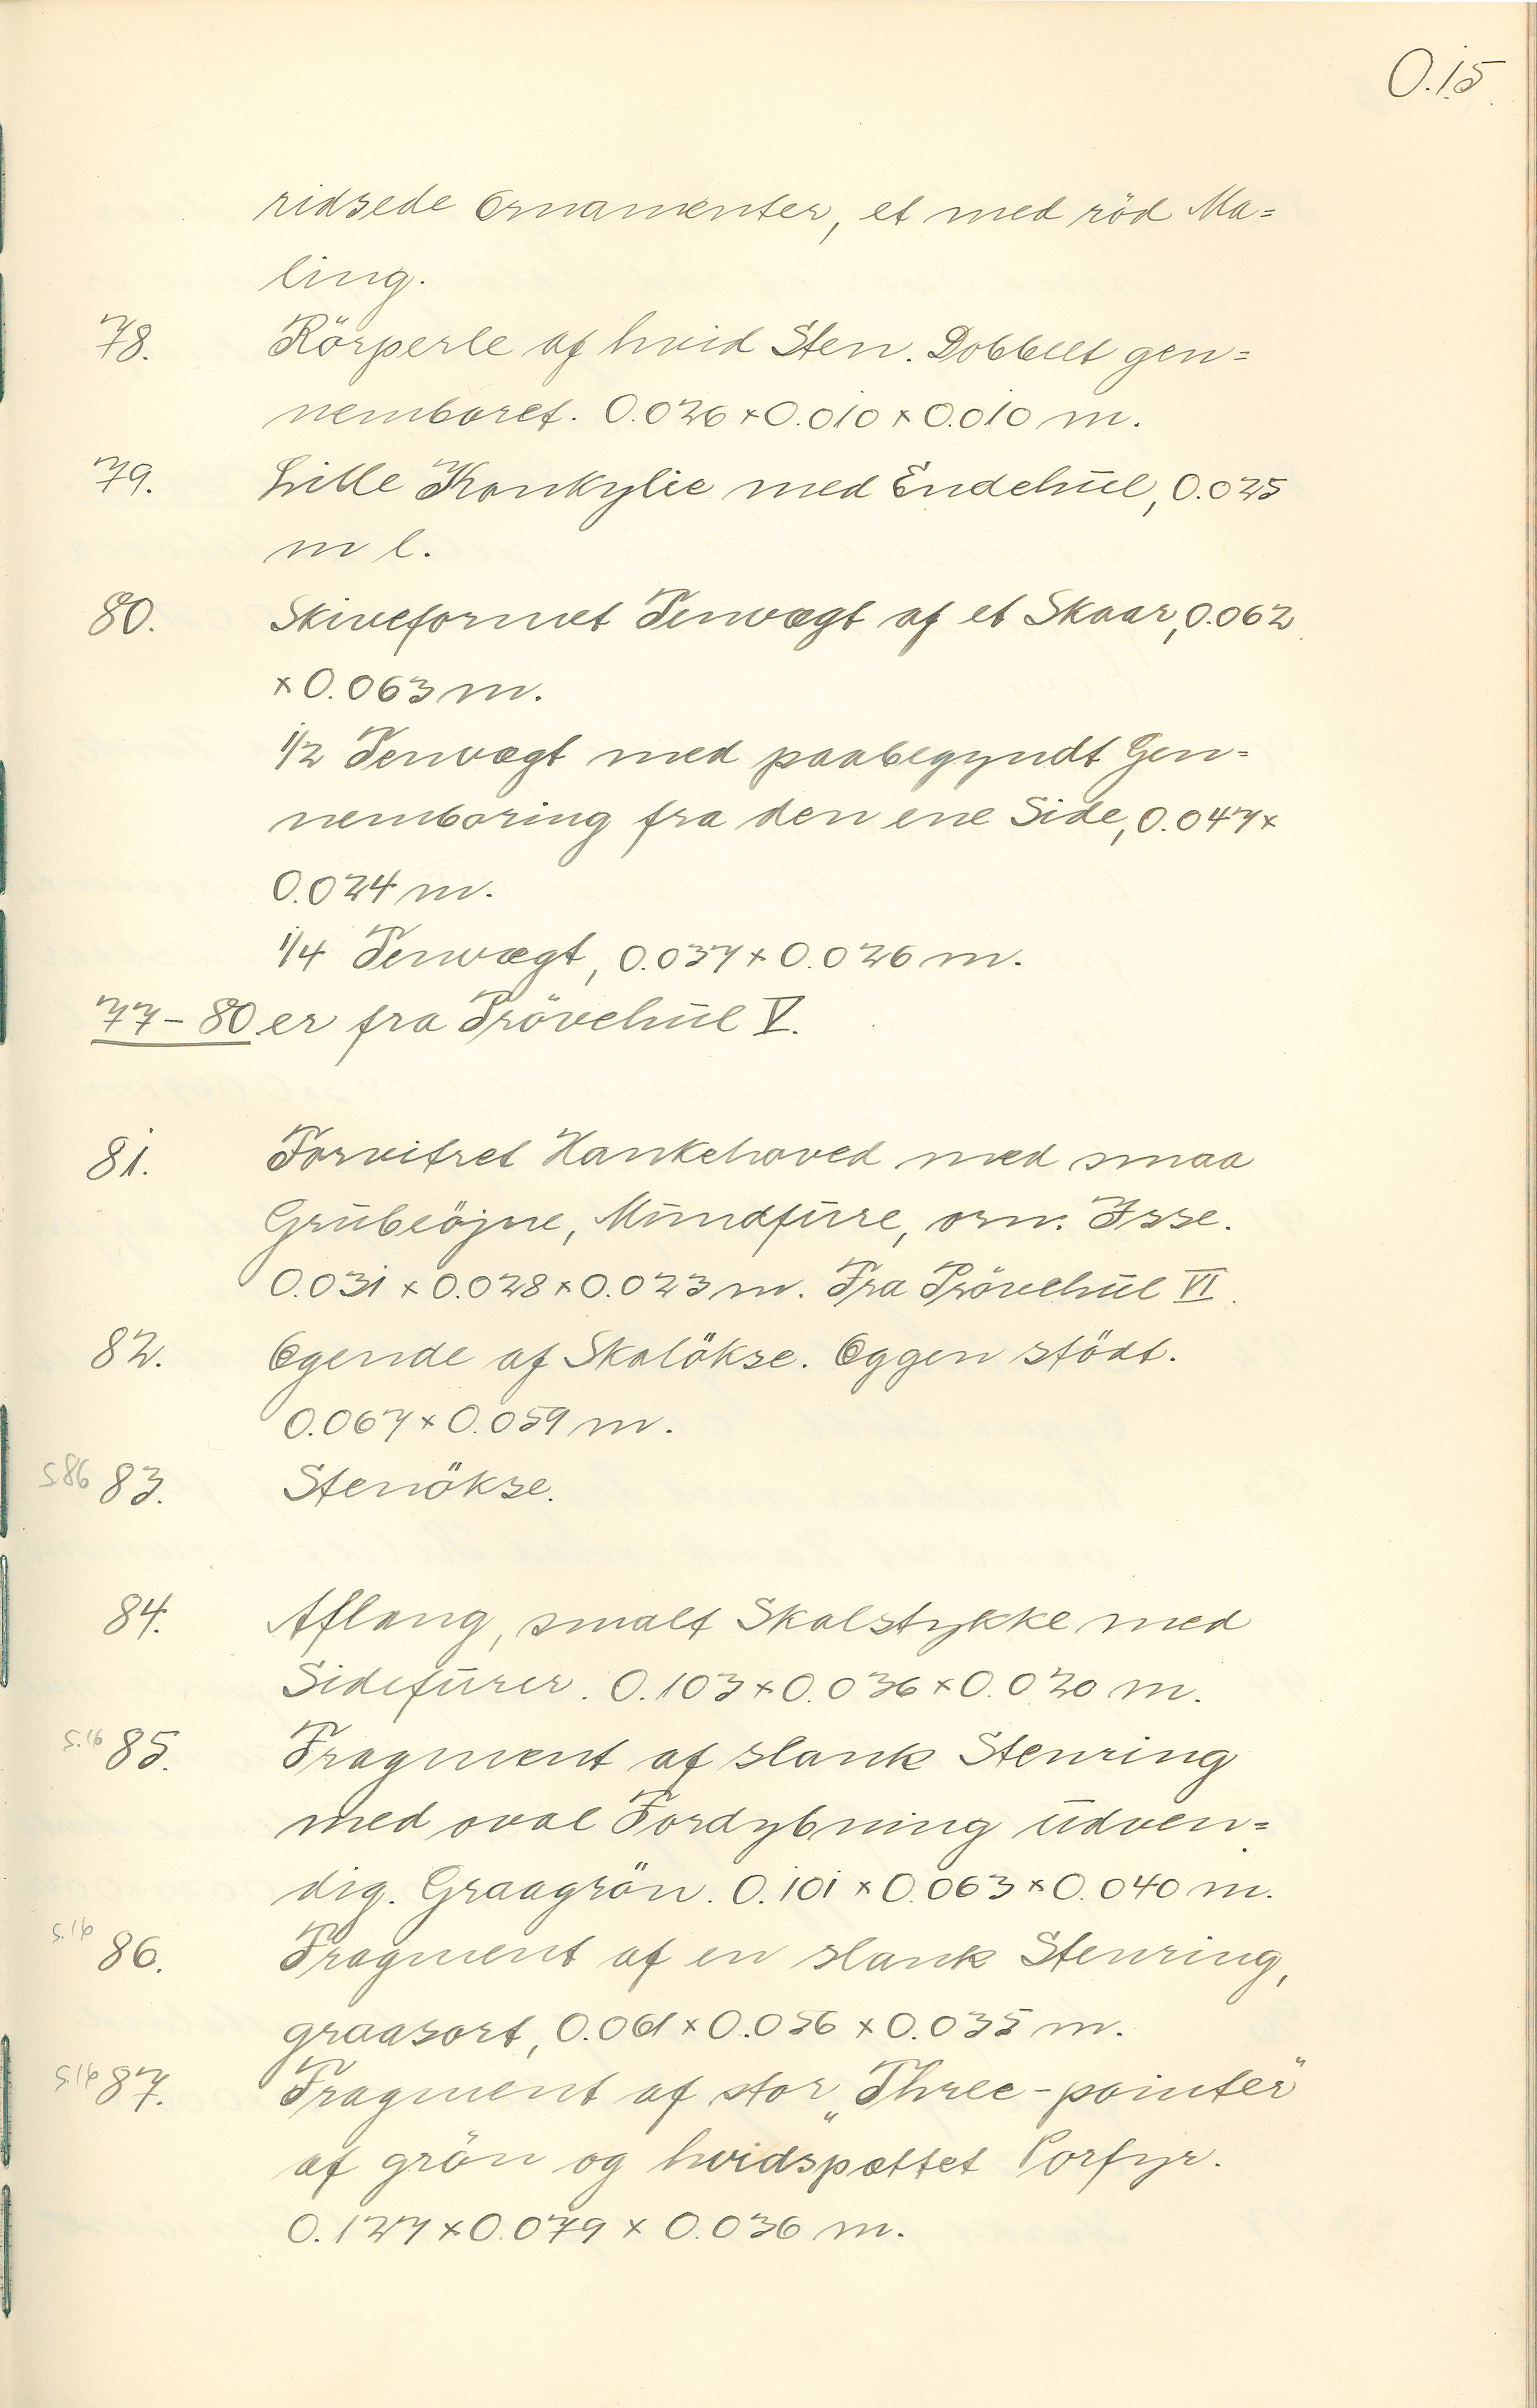 O.15.
ridsede Ornamenter, et med röd Ma=
ling.
78. Rörperle af hvid Sten. Dobbelt gen=
nemboret. 0.026 × 0.010 × 0.010 m.
79. Lille Konkylie med Endehul, 0.025
m l.
80. Skiveformet Tenvægt af et Skaar, 0.062
× 0.063 m.
1/2 Tenvægt med paabegyndt Gen=
nemboring fra den ene Side, 0.047 ×
0.024 m.
1/4 Tenvægt, 0.037 × 0.026 m.
77 - 80 er fra Prövehul V.
81. Forvitret Hankehoved med smaa
Grubeöjne, Mundfure, orn. Isse.
0.031 × 0.028 × 0.023 m. Fra Prövehul VI.
82. Egende af Skalökse. Eggen stödt.
0.067 × 0.059 m.
S.86 83. Stenökse.
84. Aflang, smalt Skalstykke med
Sidefurer. 0.103 × 0.036 × 0.020 m.
S.16 85. Fragment af slank Stenring
med oval Fordybning udven=
dig. Graagrön. 0.101 × 0.063 × 0.040 m.
S.16 86. Fragment af en slank Stenring,
graasort, 0.061 × 0.056 × 0.035 m.
S.16 87. Fragment af stor „Three-pointer"
af grön og hvidspættet Porfyr.
0.127 × 0.079 × 0.036 m.